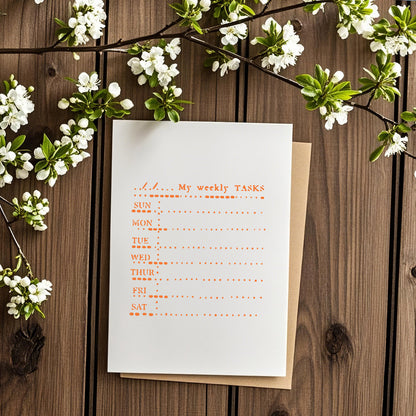 My weekly TASKS
SUN
MON
TUE
WED
THUR
FRI
SAT